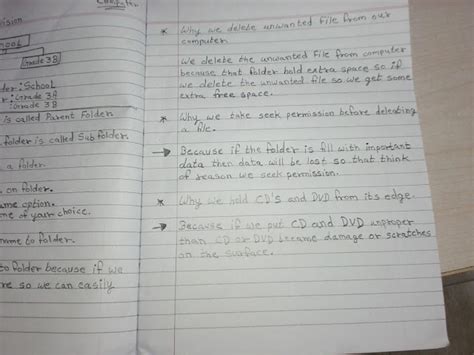 Computer
vision
School
Grade 3B
der: School
r: Grade 3B
Grade 3B
is called Parent Folder
folder is called Sub folder
a folder.
on folder.
ame option.
me of your choice.
name to folder.
to folder because if we
re so we can easily
* Why we delete unwanted File from our
computer
We delete the unwanted File from computer
because that folder hold extra space so if
we delete the unwanted file so we get some
extra free space.
* Why we take seek permission before deleating
a file.
→ Because if the folder is fill with important
data then data will be lost so that think
of reason we seek permission.
* Why we hold CD's and DVD from its edge.
→ Because if we put CD and DVD unproper
than CD or DVD became damage or scratches
on the surface.